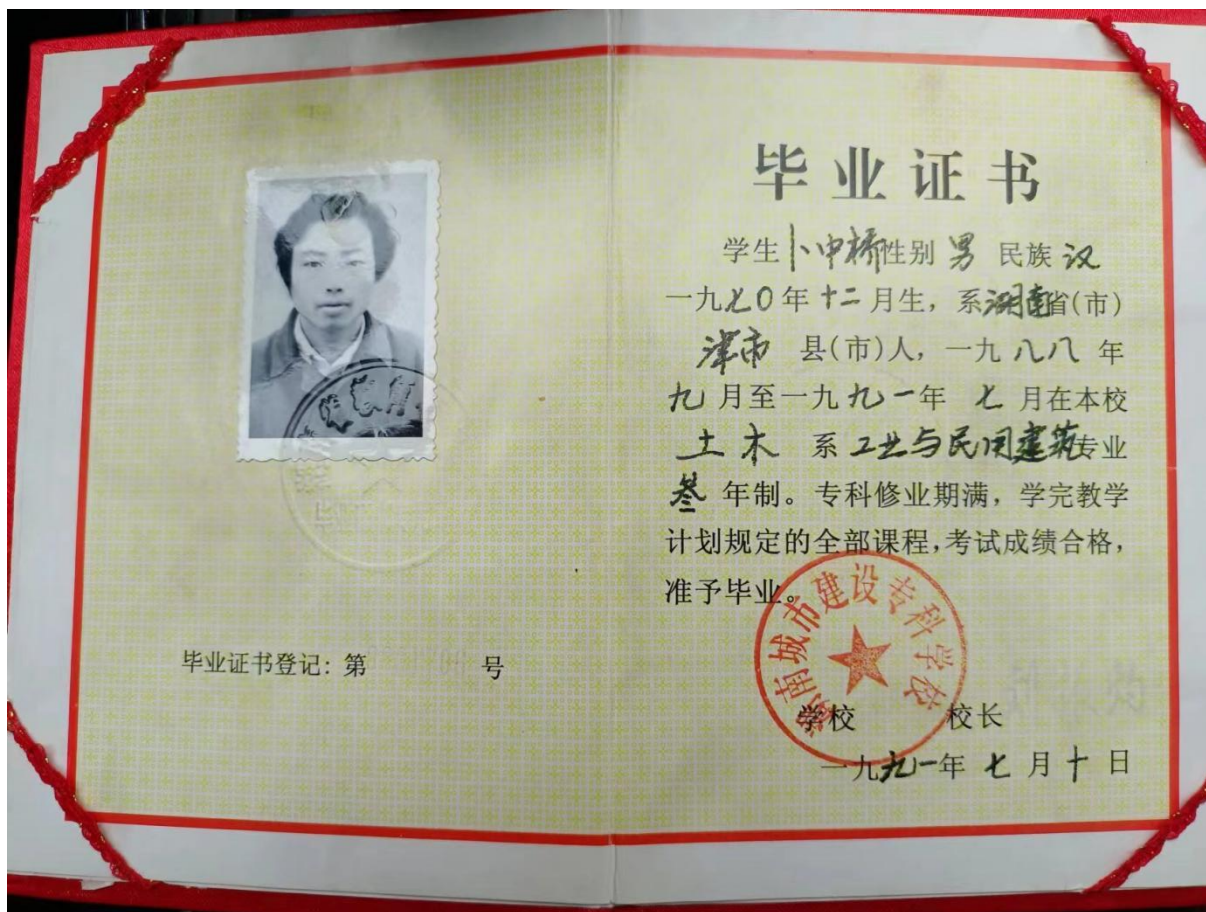 毕业证书登记: 第 号
毕业证书
学生卜申桥性别 男 民族 汉
一九七0年十二月生, 系湖南省(市)
津市 县(市)人, 一九八八年
九月至一九九一年 七月在本校
土木 系 工业与民用建筑专业
叁 年制。专科修业期满, 学完教学
计划规定的全部课程, 考试成绩合格,
准予毕业。
湖南城市建设专科学校
学校 校长
一九九一年 七月十日